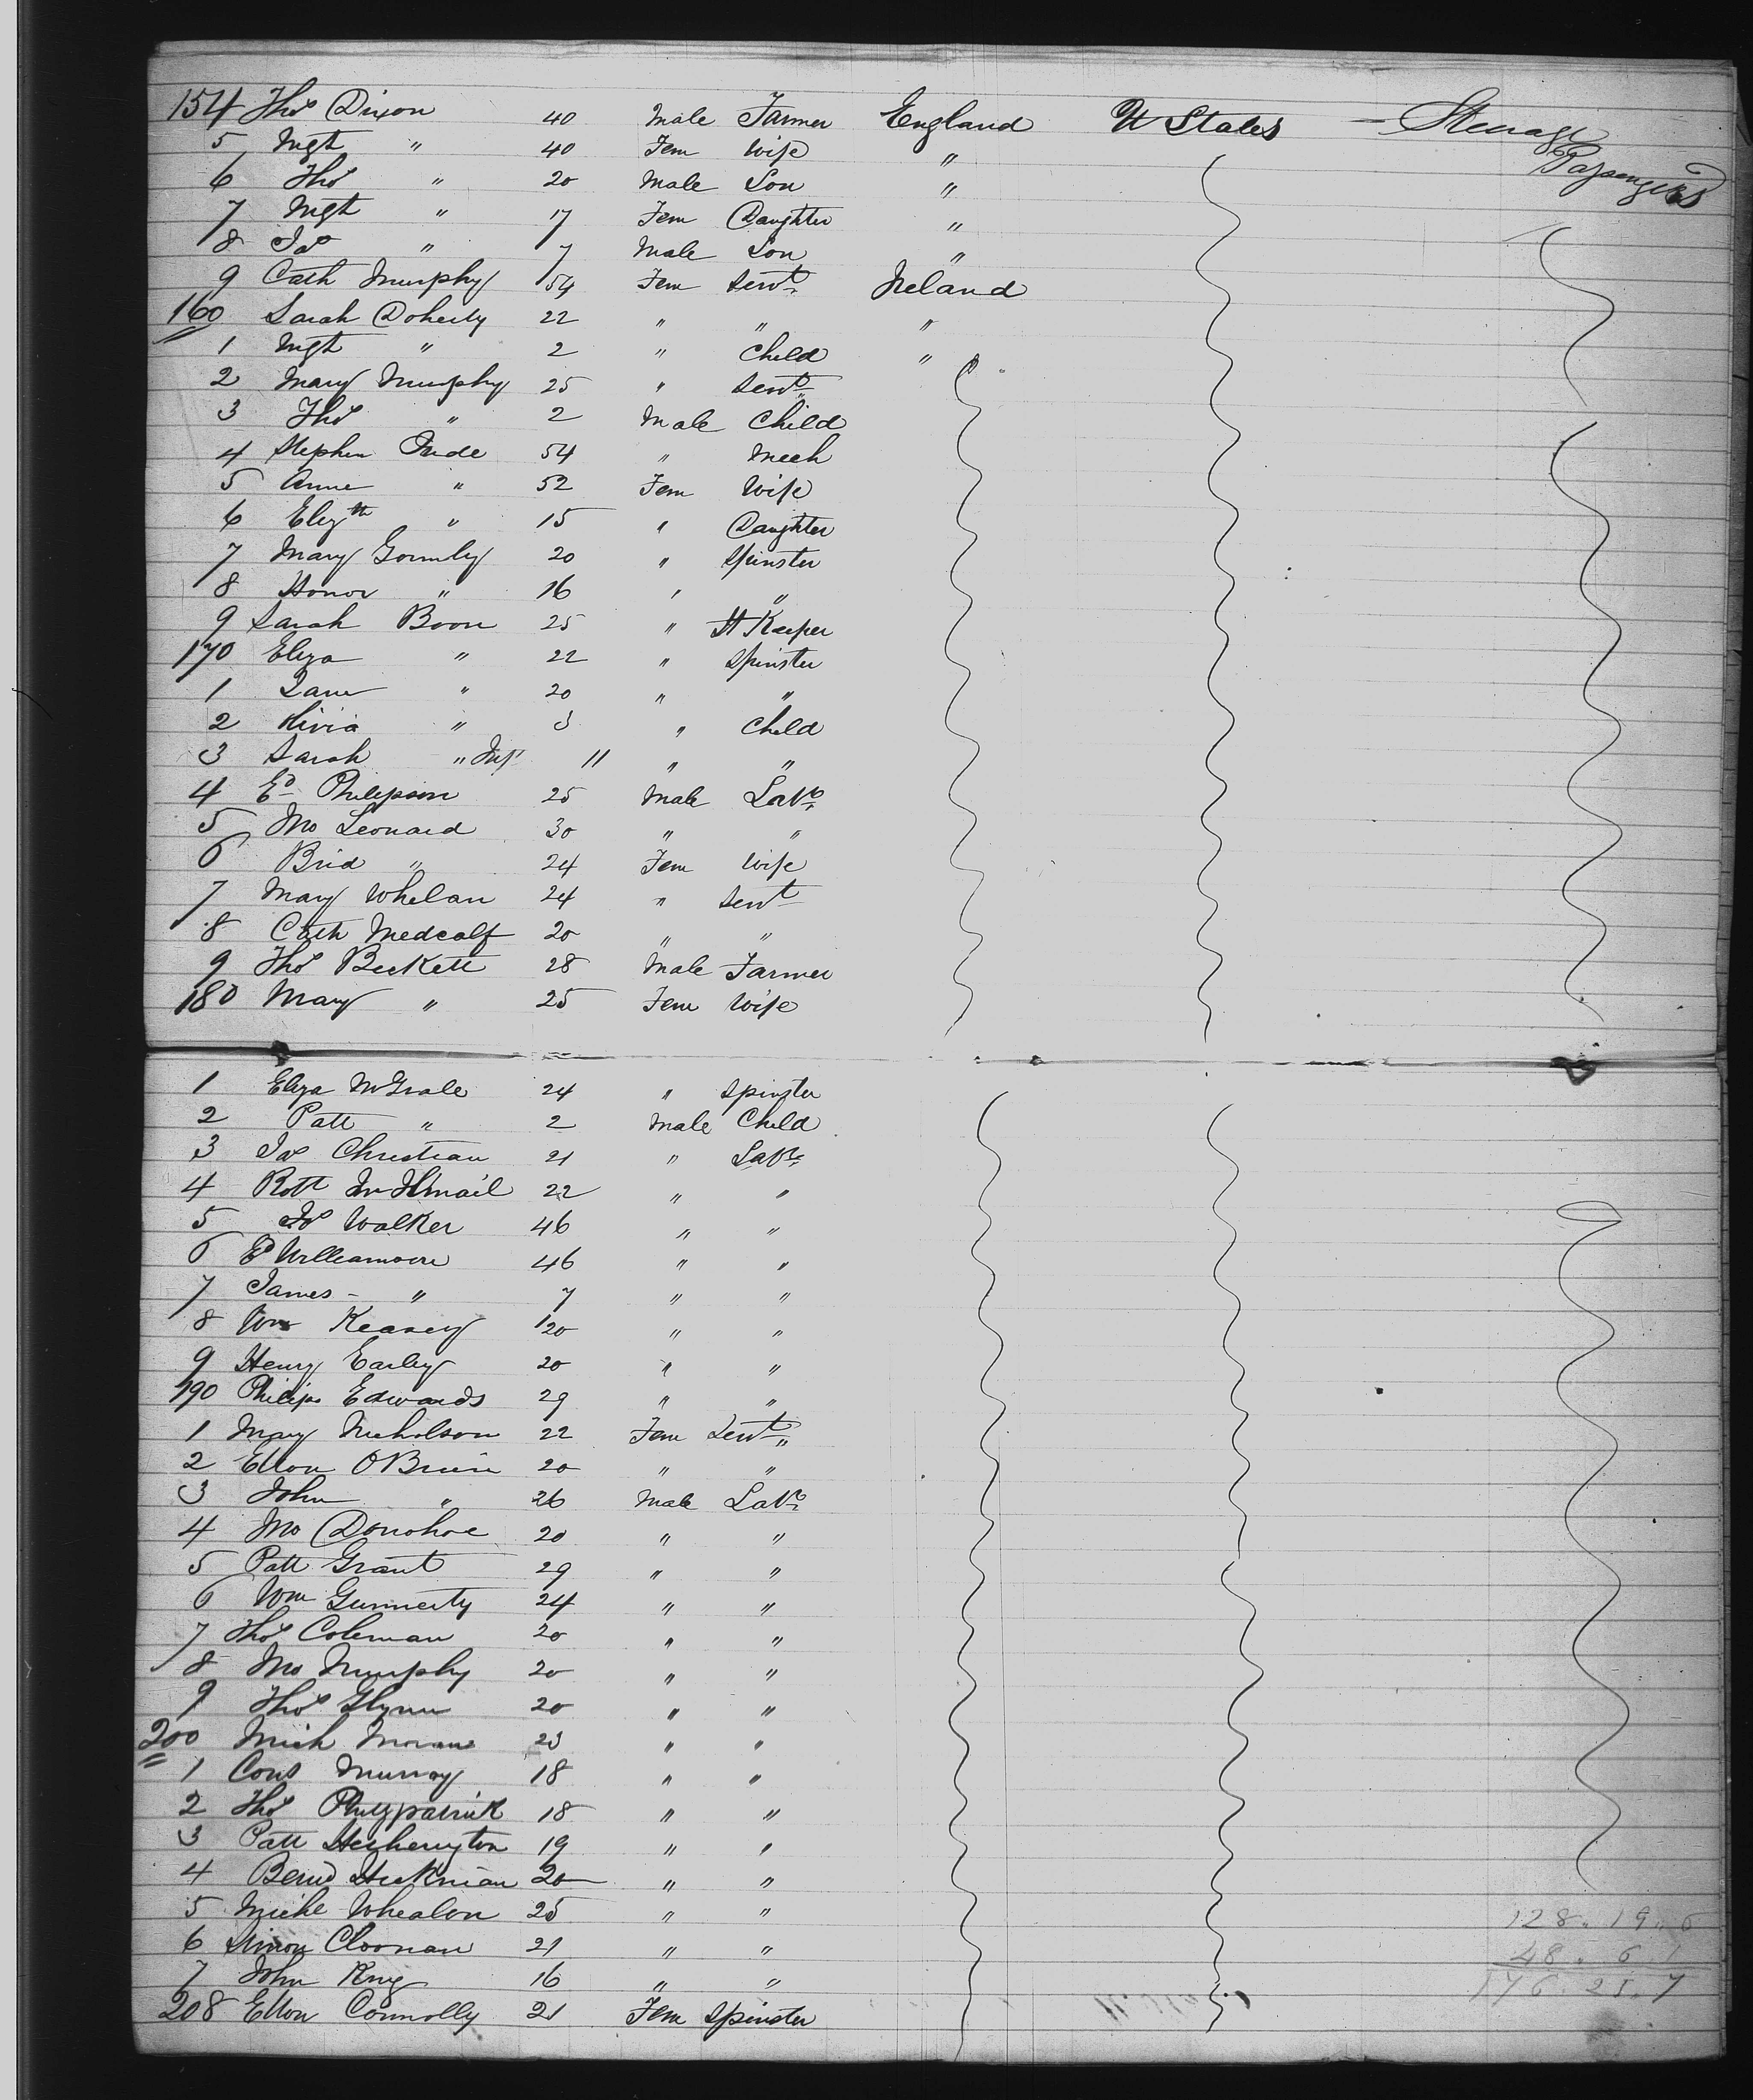 154 Thos Dixon 40 Male Farmer England U States — Steerage
5 Mgt " 40 Fem Wife "
Passengers
6 Thos " 20 Male Son "
7 Mgt " 17 Fem Daughter "
8 Jas " 7 Male Son "
9 Cath Murphy 54 Fem Servt Ireland
160 Sarah Doherty 22 " " "
1 Mgt " 2 " Child "
2 Mary Murphy 25 " Servt
3 Thos " 2 Male Child
4 Stephen 54 " Mech
5 Anne " 52 Fem Wife
6 Elizth " 15 " Daughter
7 Mary Gormly 20 " Spinster
8 Honor " 16 " "
9 Sarah Boon 25 " H Keeper
170 Eliza " 22 " Spinster
1 Jane " 20 " "
2 Olivia " 3 " Child
3 Sarah " Inf 11 " "
4 Ed Philipson 25 Male Labr
5 Jno Leonard 30 " "
6 Brid " 24 Fem Wife
7 Mary Whelan 24 " Servt
8 Cath Medcalf 20 " "
9 Thos Beckett 28 Male Farmer
180 Mary " 25 Fem Wife
1 Eliza McGrale 24 " Spinster
2 Patt " 2 Male Child
3 Jas Christian 21 " Labr
4 Robt 22 " "
5 Walker 46 " "
6 Ed Williamson 46 " "
7 James - " 7 " "
8 Wm Keaney 20 " "
9 Henry Earley 20 " "
190 Philip Edwards 29 " "
1 Mary Nicholson 22 Fem Servt "
2 Ellen OBrien 20 " "
3 John " 26 Male Labr
4 Jno Donohoe 20 " "
5 Patt Grant 29 " "
6 Wm Gunnerty 24 " "
7 Thos Coleman 20 " "
8 Jno Murphy 20 " "
9 Thos Glynn 20 " "
200 Mich Moran 23 " "
1 Cons Murray 18 " "
2 Thos Phitzpatrick 18 " "
3 Patt Hetherington 19 " "
4 Bernd Hickman 20 " "
5 Michl Whealon 25 " "
6 Simon Cloonan 21 " "
7 John King 16 " "
208 Ellen Connolly 21 Fem Spinster
128.19.6
48.6.1
176.25.7